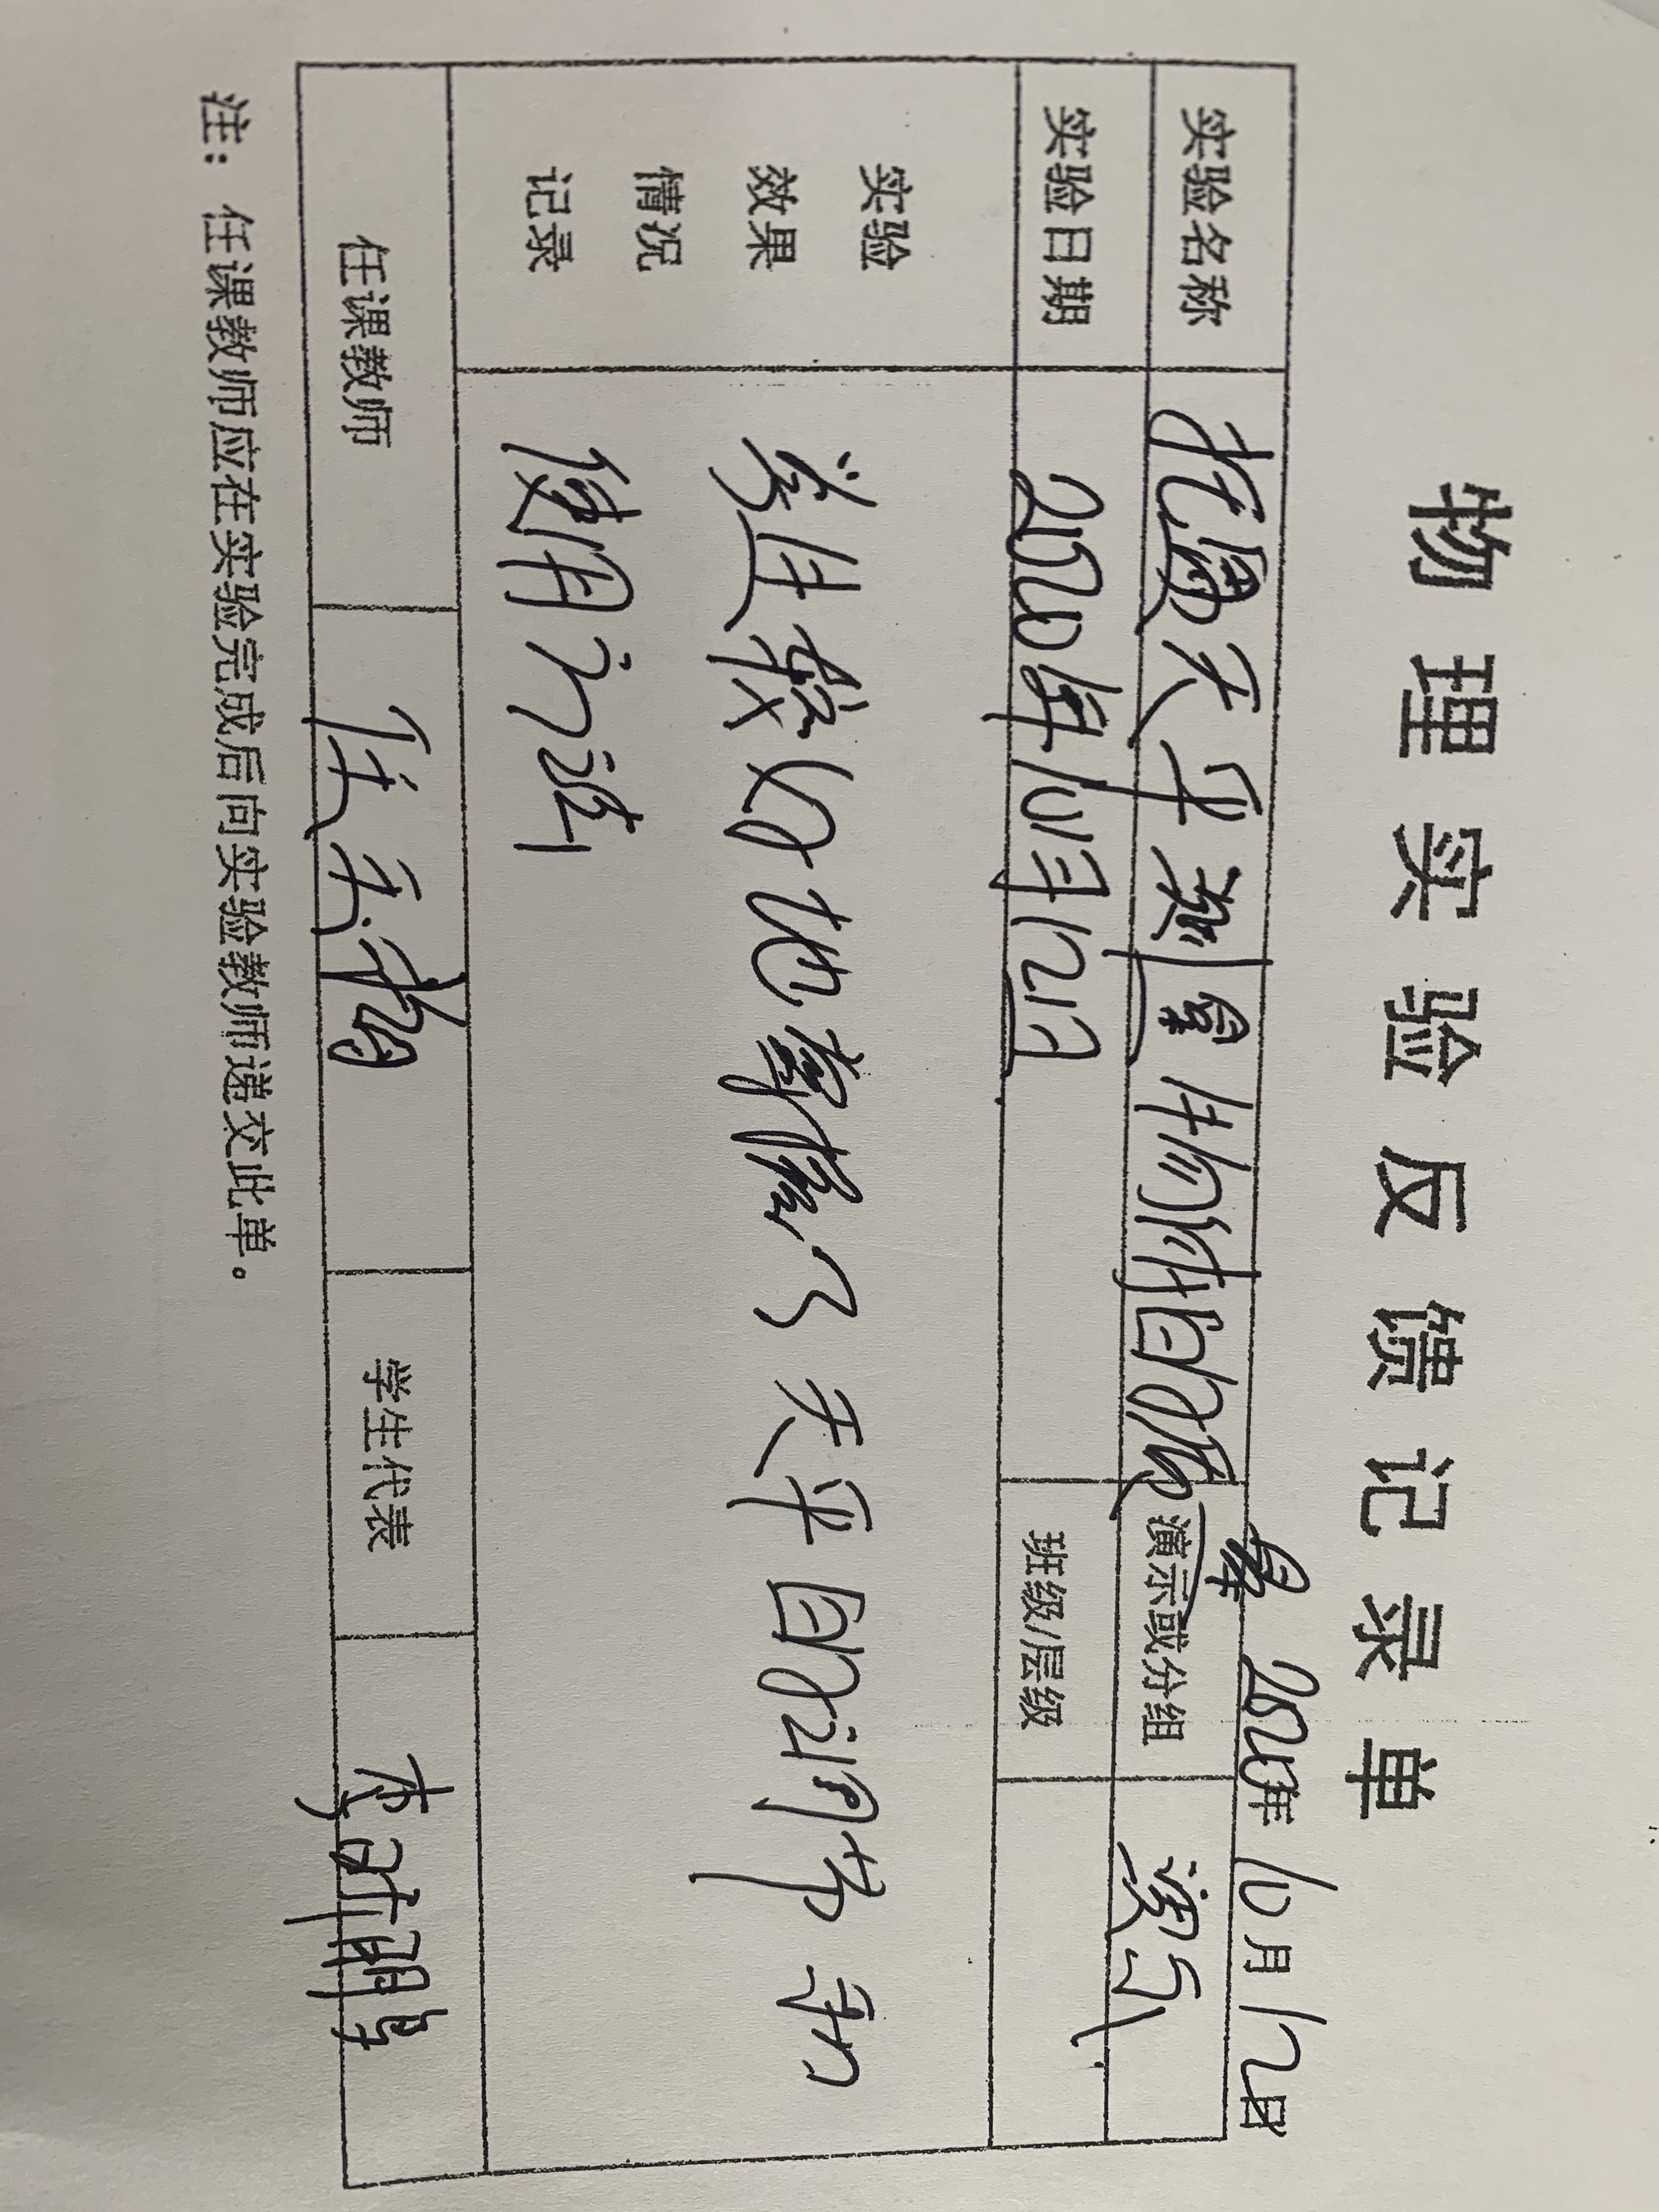 物理实验反馈记录单
2020年10月12日
实验名称 托盘天平测量物体的质量 演示或分组 演示
实验日期 2020年10月12日 班级/层级
实验
效果
情况
记录
学生较好地掌握了天平的调节和
使用方法
任课教师 学生代表
注：任课教师应在实验完成后向实验教师递交此单。